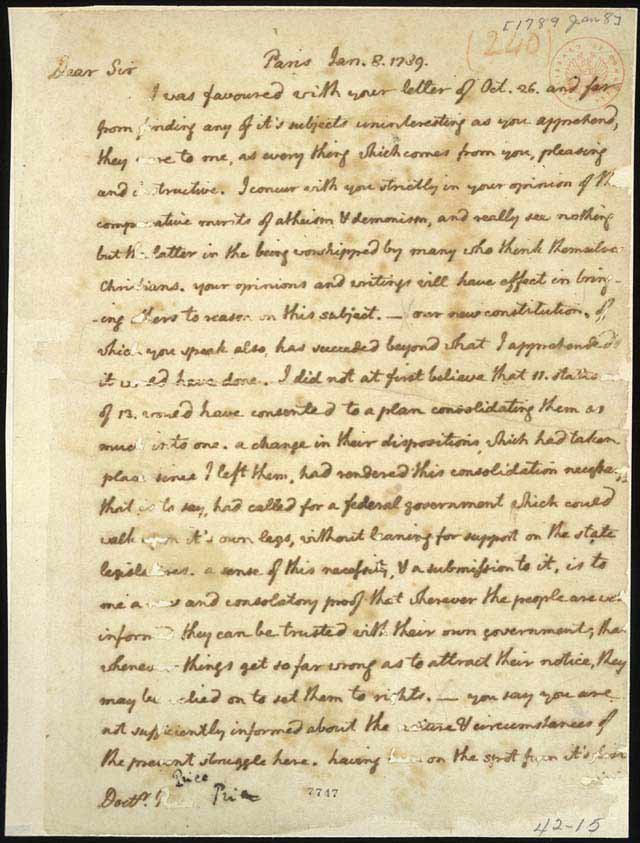 [1789 Jan 8]
(240)
Paris Jan. 8. 1789.
Dear Sir
I was favoured with your letter of Oct. 26. and far
from finding any of it's subjects uninteresting as you apprehend,
they were to me, as every thing which comes from you, pleasing
and instructive. I concur with you strictly in your opinion of the
comparative merits of atheism & demonism, and really see nothing
but the latter in the being worshipped by many who think themselves
Christians. your opinions and writings will have effect in bring-
-ing others to reason on this subject. — our new constitution, of
which you speak also, has succeeded beyond what I apprehended
it would have done. I did not at first believe that 11. states
of 13. would have consented to a plan consolidating them as
much into one. a change in their dispositions, which had taken
place since I left them, had rendered this consolidation necessary,
that is to say, had called for a federal government which could
walk upon it's own legs, without leaning for support on the state
legislatures. a sense of this necessity, & a submission to it, is to
me a new and consolatory proof that wherever the people are well
informed they can be trusted with their own government; that
whenever things get so far wrong as to attract their notice, they
may be relied on to set them to rights. — you say you are
not sufficiently informed about the nature & circumstances of
the present struggle here. having been on the spot from it's first
Doctr. Price
Price
7747
42-15